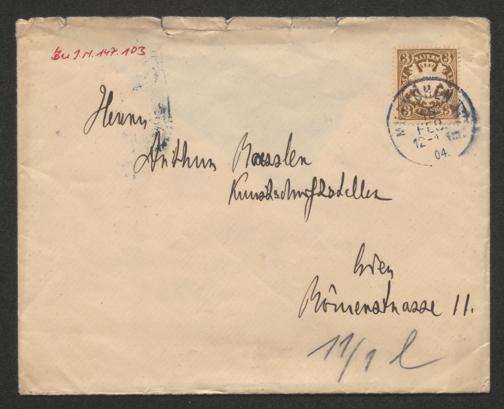 Zu I.N. 147.103
3 BAYERN 3
MÜNCHEN
FEB
12-1
04.
Herrn
Arthur Roessler
Kunstschriftsteller
Wien
Römerstrasse 11.
11/1 l